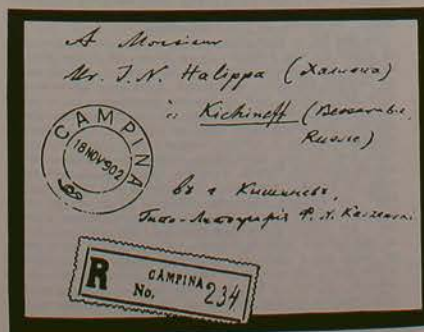 A Monsieur
Mr. I. N. Halippa (Халиппа)
à Kichineff (Bessarabie,
Russie)
CAMPINA
18 NOV 902
въ г Кишиневъ,
Типо-Литографія Ф. Н.
R CAMPINA
No. 234